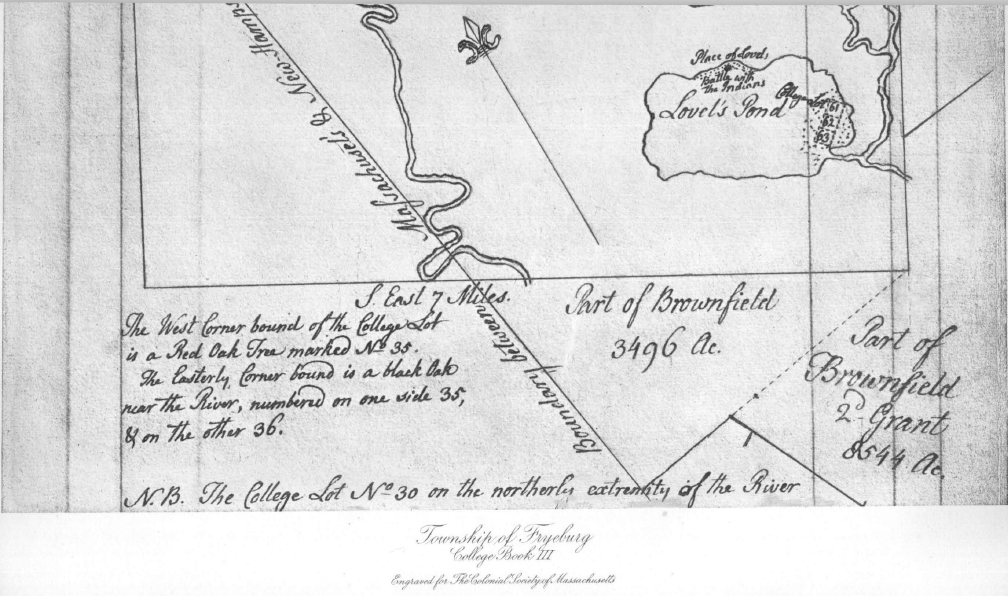 Boundary between Massachusets & New-Hamps
Place of Lovel's
Battle with
the Indians
Lovel's Pond
College Lots 61
62
63
S. East 7 Miles.
The West Corner bound of the College Lot
is a Red Oak Tree marked No. 35.
The Easterly Corner bound is a black Oak
near the River, numbered on one side 35,
& on the other 36.
N.B. The College Lot No. 30 on the northerly extremity of the River
Part of Brownfield
3496 Ac.
Part of
Brownfield
2d. Grant
8544 Ac.
Township of Fryeburg
College Book III
Engraved for The Colonial Society of Massachusetts